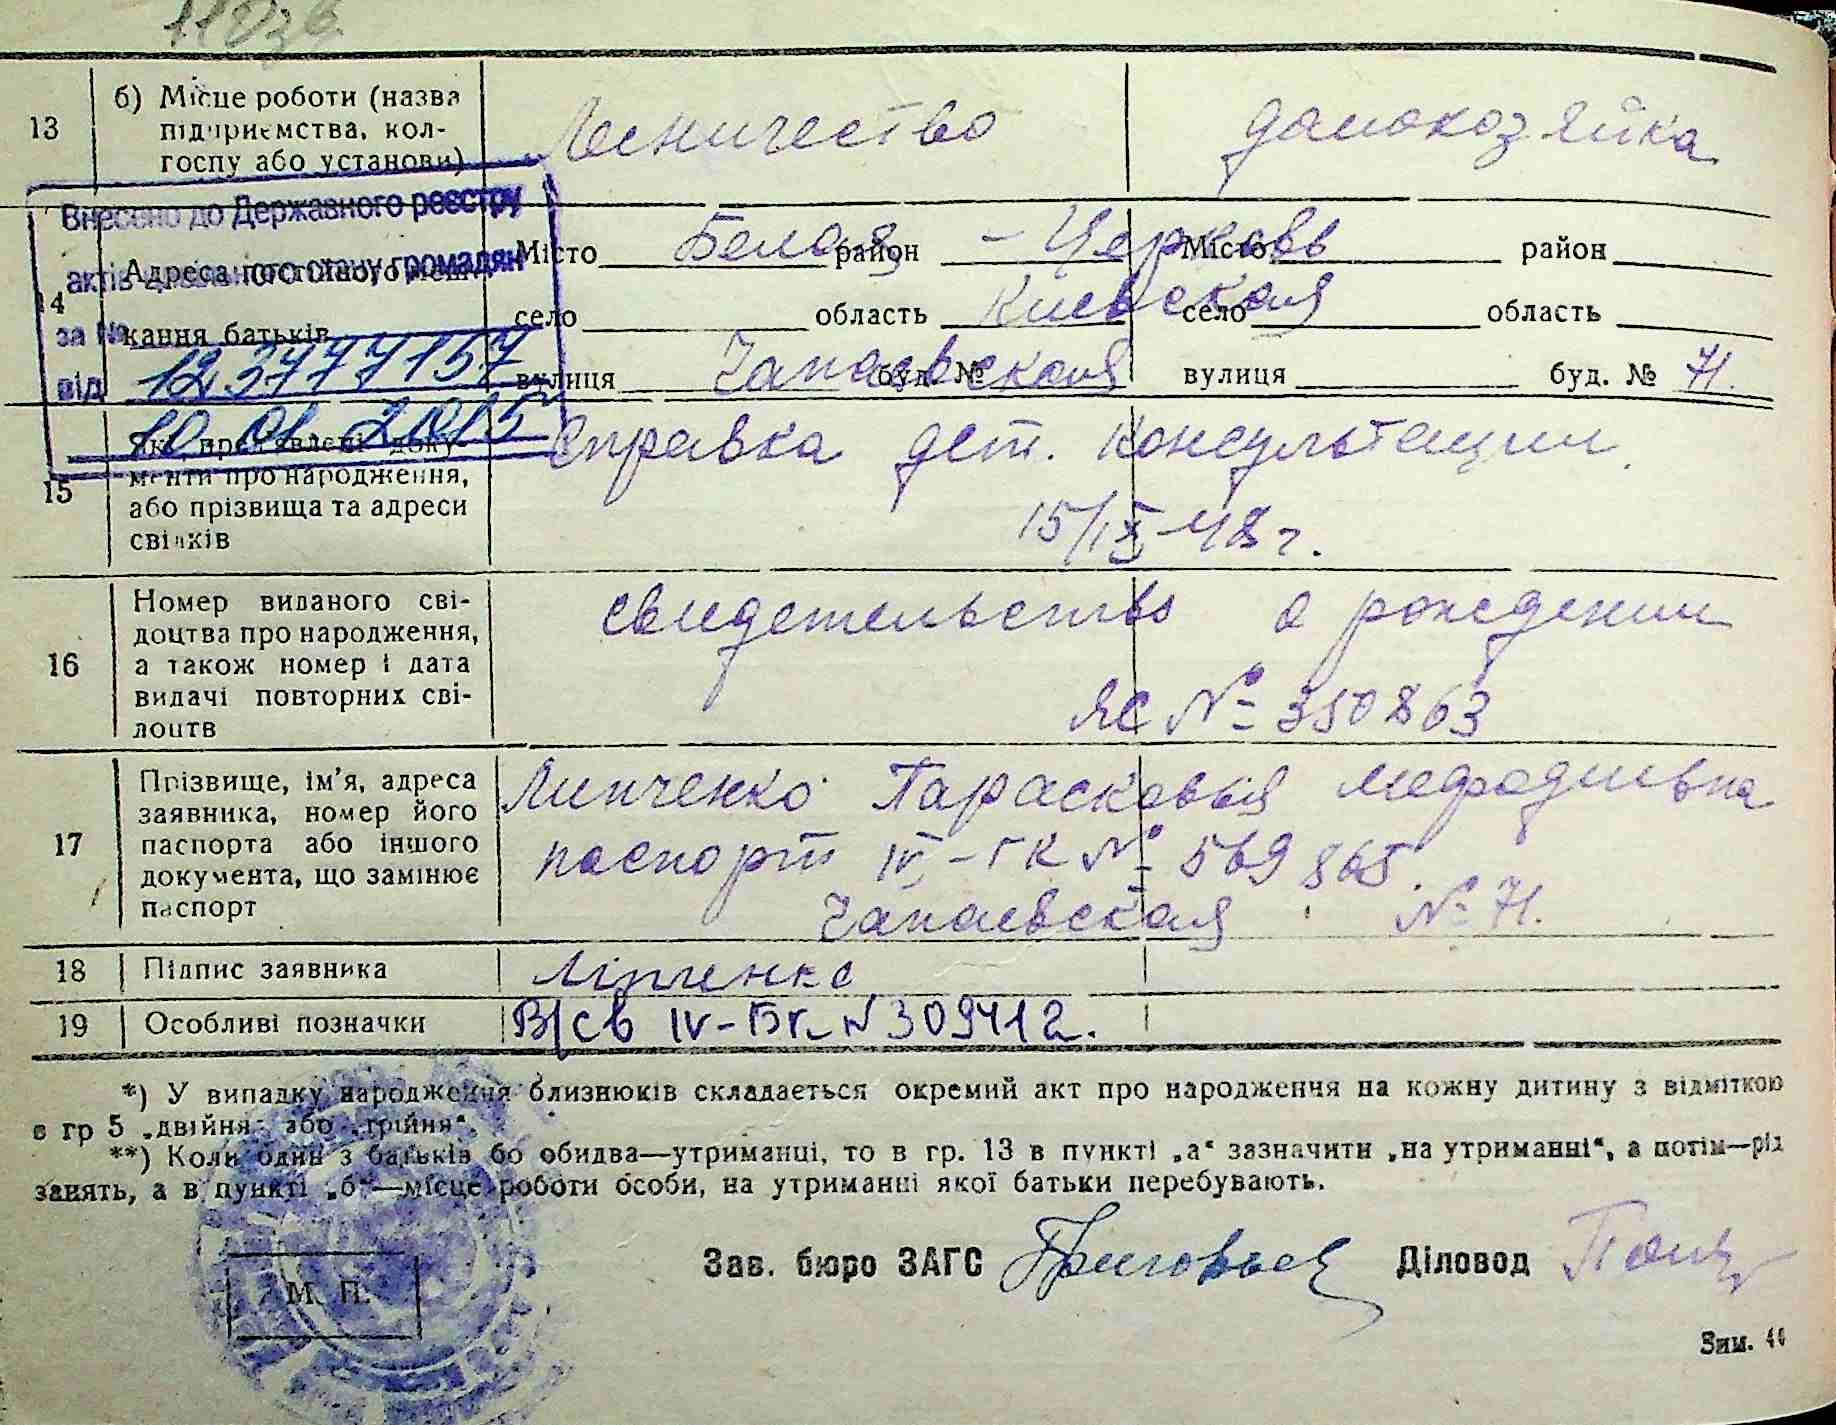 13 б) Місце роботи (назва підприємства, колгоспу або установи) Лесничество домохозяйка
Внесено до Державного реєстру
актів цивільного стану громадян
за № 123777157
від 10.01.2015
14 Адреса постійного мешкання батьків
Місто Белая район – Церковь Місто район
село область Киевская село область
вулиця Чапаевская буд. № вулиця буд. № 71.
15 Які пред'явлені документи про народження, або прізвища та адреси свідків
Справка дет. консультации
15/IX-48 г.
16 Номер виданого свідоцтва про народження, а також номер і дата видачі повторних свідоцтв
свидетельство о рождении
ЯС № 350863
17 Прізвище, ім'я, адреса заявника, номер його паспорта або іншого документа, що замінює паспорт
Липченко Парасковья Мефодиевна
паспорт IV-ГК № 569865.
Чапаевская № 71.
18 Підпис заявника Ліпченко
19 Особливі позначки В/св IV-Бк №309412.
*) У випадку народження близнюків складається окремий акт про народження на кожну дитину з відміткою
в гр 5 „двійня“ або „трійня“.
**) Коли один з батьків бо обидва—утриманці, то в гр. 13 в пункті „а“ зазначити „на утриманні“, а потім—рід
занять, а в пункті „б“—місце роботи особи, на утриманні якої батьки перебувають.
Зав. бюро ЗАГС Григорьев Діловод
М. П.
Зим.